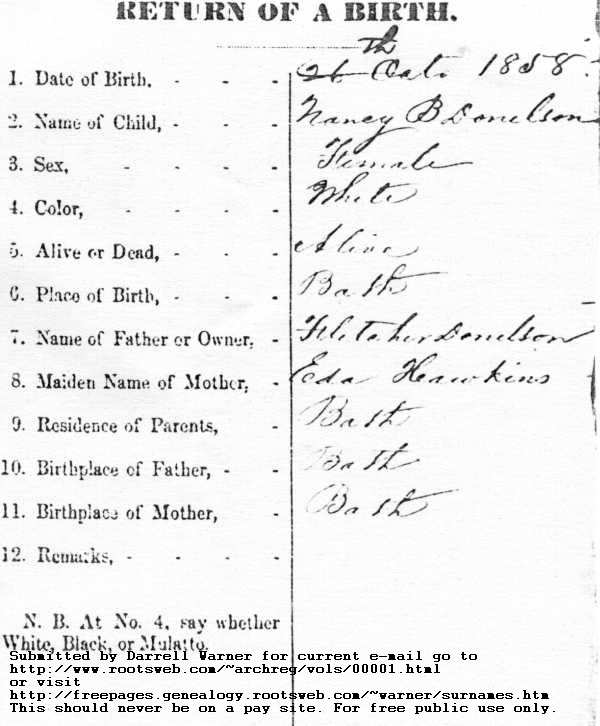 RETURN OF A BIRTH.
1. Date of Birth, - - - 26th Oct. 1858.
2. Name of Child, - - - Nancy B Donelson
3. Sex, - - - Female
4. Color, - - - White
5. Alive or Dead, - - - Alive
6. Place of Birth, - - - Bath
7. Name of Father or Owner, - Fletcher Donelson
8. Maiden Name of Mother, - Eda Hawkins
9. Residence of Parents, - Bath
10. Birthplace of Father, - - Bath
11. Birthplace of Mother, - Bath
12. Remarks, - - - -
N. B. At No. 4, say whether
White, Black, or Mulatto.
Submitted by Darrell Warner for current e-mail go to
http://www.rootsweb.com/~archreg/vols/00001.html
or visit
http://freepages.genealogy.rootsweb.com/~warner/surnames.htm
This should never be on a pay site. For free public use only.